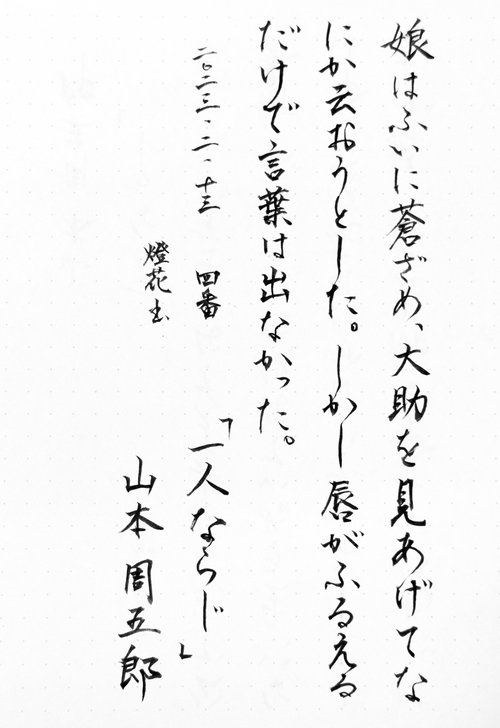 娘はふいに蒼ざめ、大助を見あげてな
にか云おうとした。しかし唇がふるえる
だけで言葉は出なかった。
「一人ならじ」
山本周五郎
二〇二三・二・十三
四番
燈花書